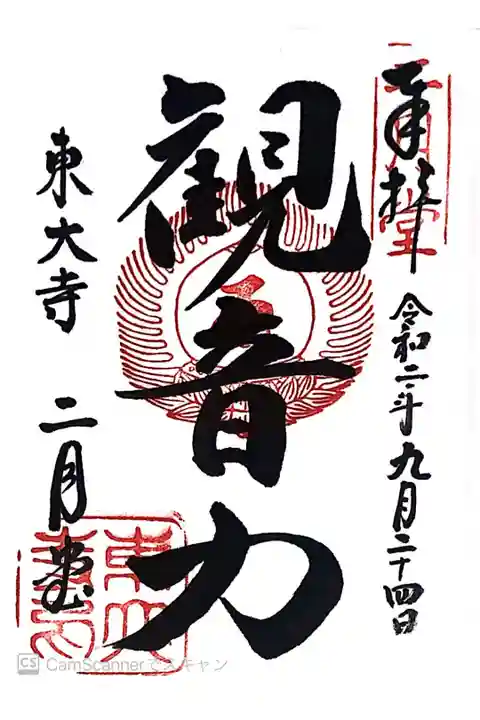 奉拝
令和二年九月二十四日
観音力
東大寺 二月堂
二月堂
CS CamScannerでスキャン